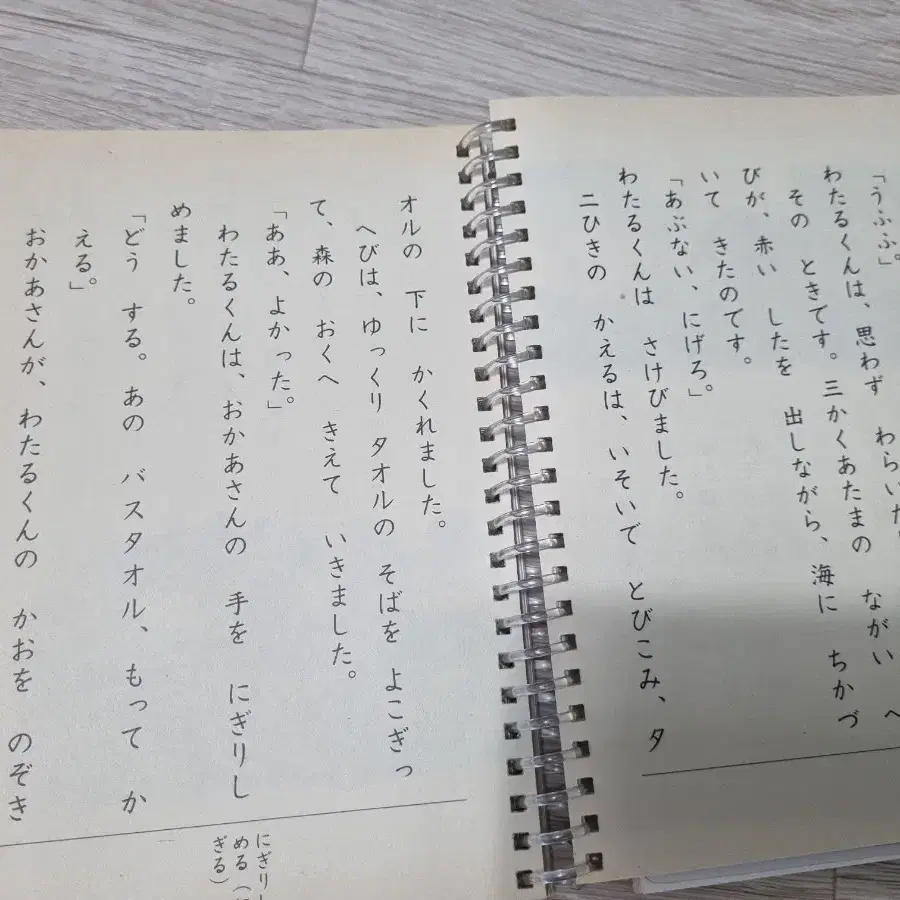 「うふふ。」
わたるくんは、思わず わらいた
その ときです。三かくあたまの ながい へ
びが、赤い したを 出しながら、海に ちかづ
いて きたのです。
「あぶない、にげろ。」
わたるくんは さけびました。
二ひきの かえるは、いそいで とびこみ、タ
オルの 下に かくれました。
へびは、ゆっくり タオルの そばを よこぎっ
て、森の おくへ きえて いきました。
「ああ、よかった。」
わたるくんは、おかあさんの 手を にぎりし
めました。
「どう する。あの バスタオル、もって か
える。」
おかあさんが、わたるくんの かおを のぞき
にぎりし
める(に
ぎる)